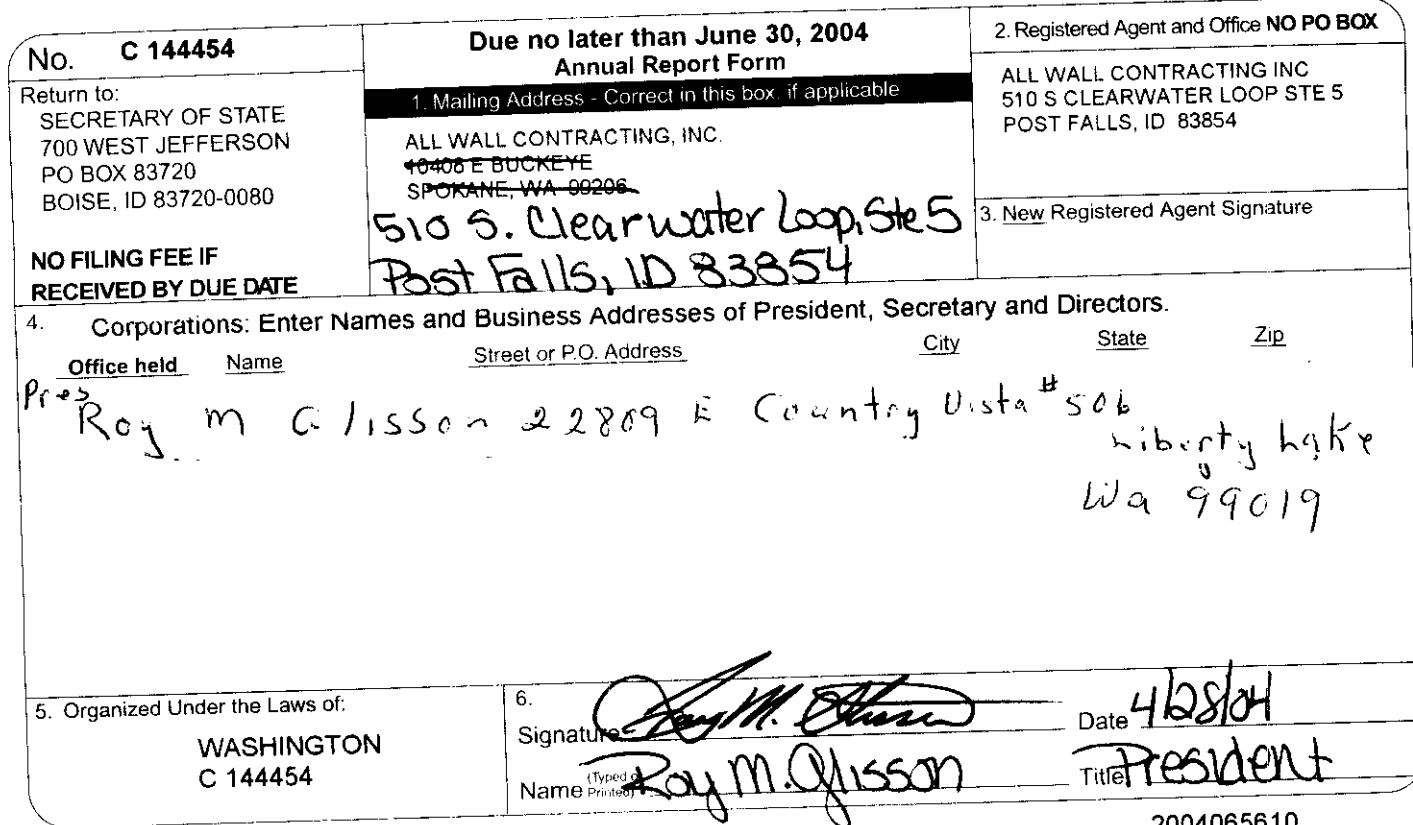 No. C 144454
Return to:
SECRETARY OF STATE
700 WEST JEFFERSON
PO BOX 83720
BOISE, ID 83720-0080
NO FILING FEE IF
RECEIVED BY DUE DATE
Due no later than June 30, 2004
Annual Report Form
1. Mailing Address - Correct in this box, if applicable
ALL WALL CONTRACTING, INC.
10408 E BUCKEYE
SPOKANE, WA 99206
510 S. Clearwater Loop, Ste 5
Post Falls, ID 83854
2. Registered Agent and Office NO PO BOX
ALL WALL CONTRACTING INC
510 S CLEARWATER LOOP STE 5
POST FALLS, ID 83854
3. New Registered Agent Signature
4. Corporations: Enter Names and Business Addresses of President, Secretary and Directors.
Office held Name Street or P.O. Address City State Zip
Pres
Roy M Glisson 22809 E Country Vista #506
Liberty Lake
Wa 99019
5. Organized Under the Laws of:
WASHINGTON
C 144454
6.
Signature Roy M. Glisson Date 4/28/04
Name (Typed or Printed) Roy M. Glisson Title President
2004065610